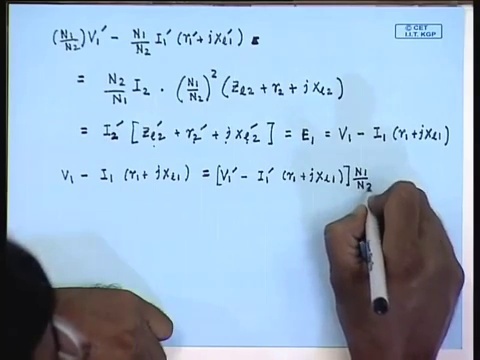 © CET
I.I.T. KGP
(N1/N2) V1' - N1/N2 I1' (r1' + j xl1')
= N2/N1 I2 · (N1/N2)² (Zl2 + r2 + j xl2)
= I2' [Zl2' + r2' + j xl2'] = E1 = V1 - I1 (r1 + j xl1)
V1 - I1 (r1 + j xl1) = [V1' - I1' (r1 + j xl1)] N1/N2